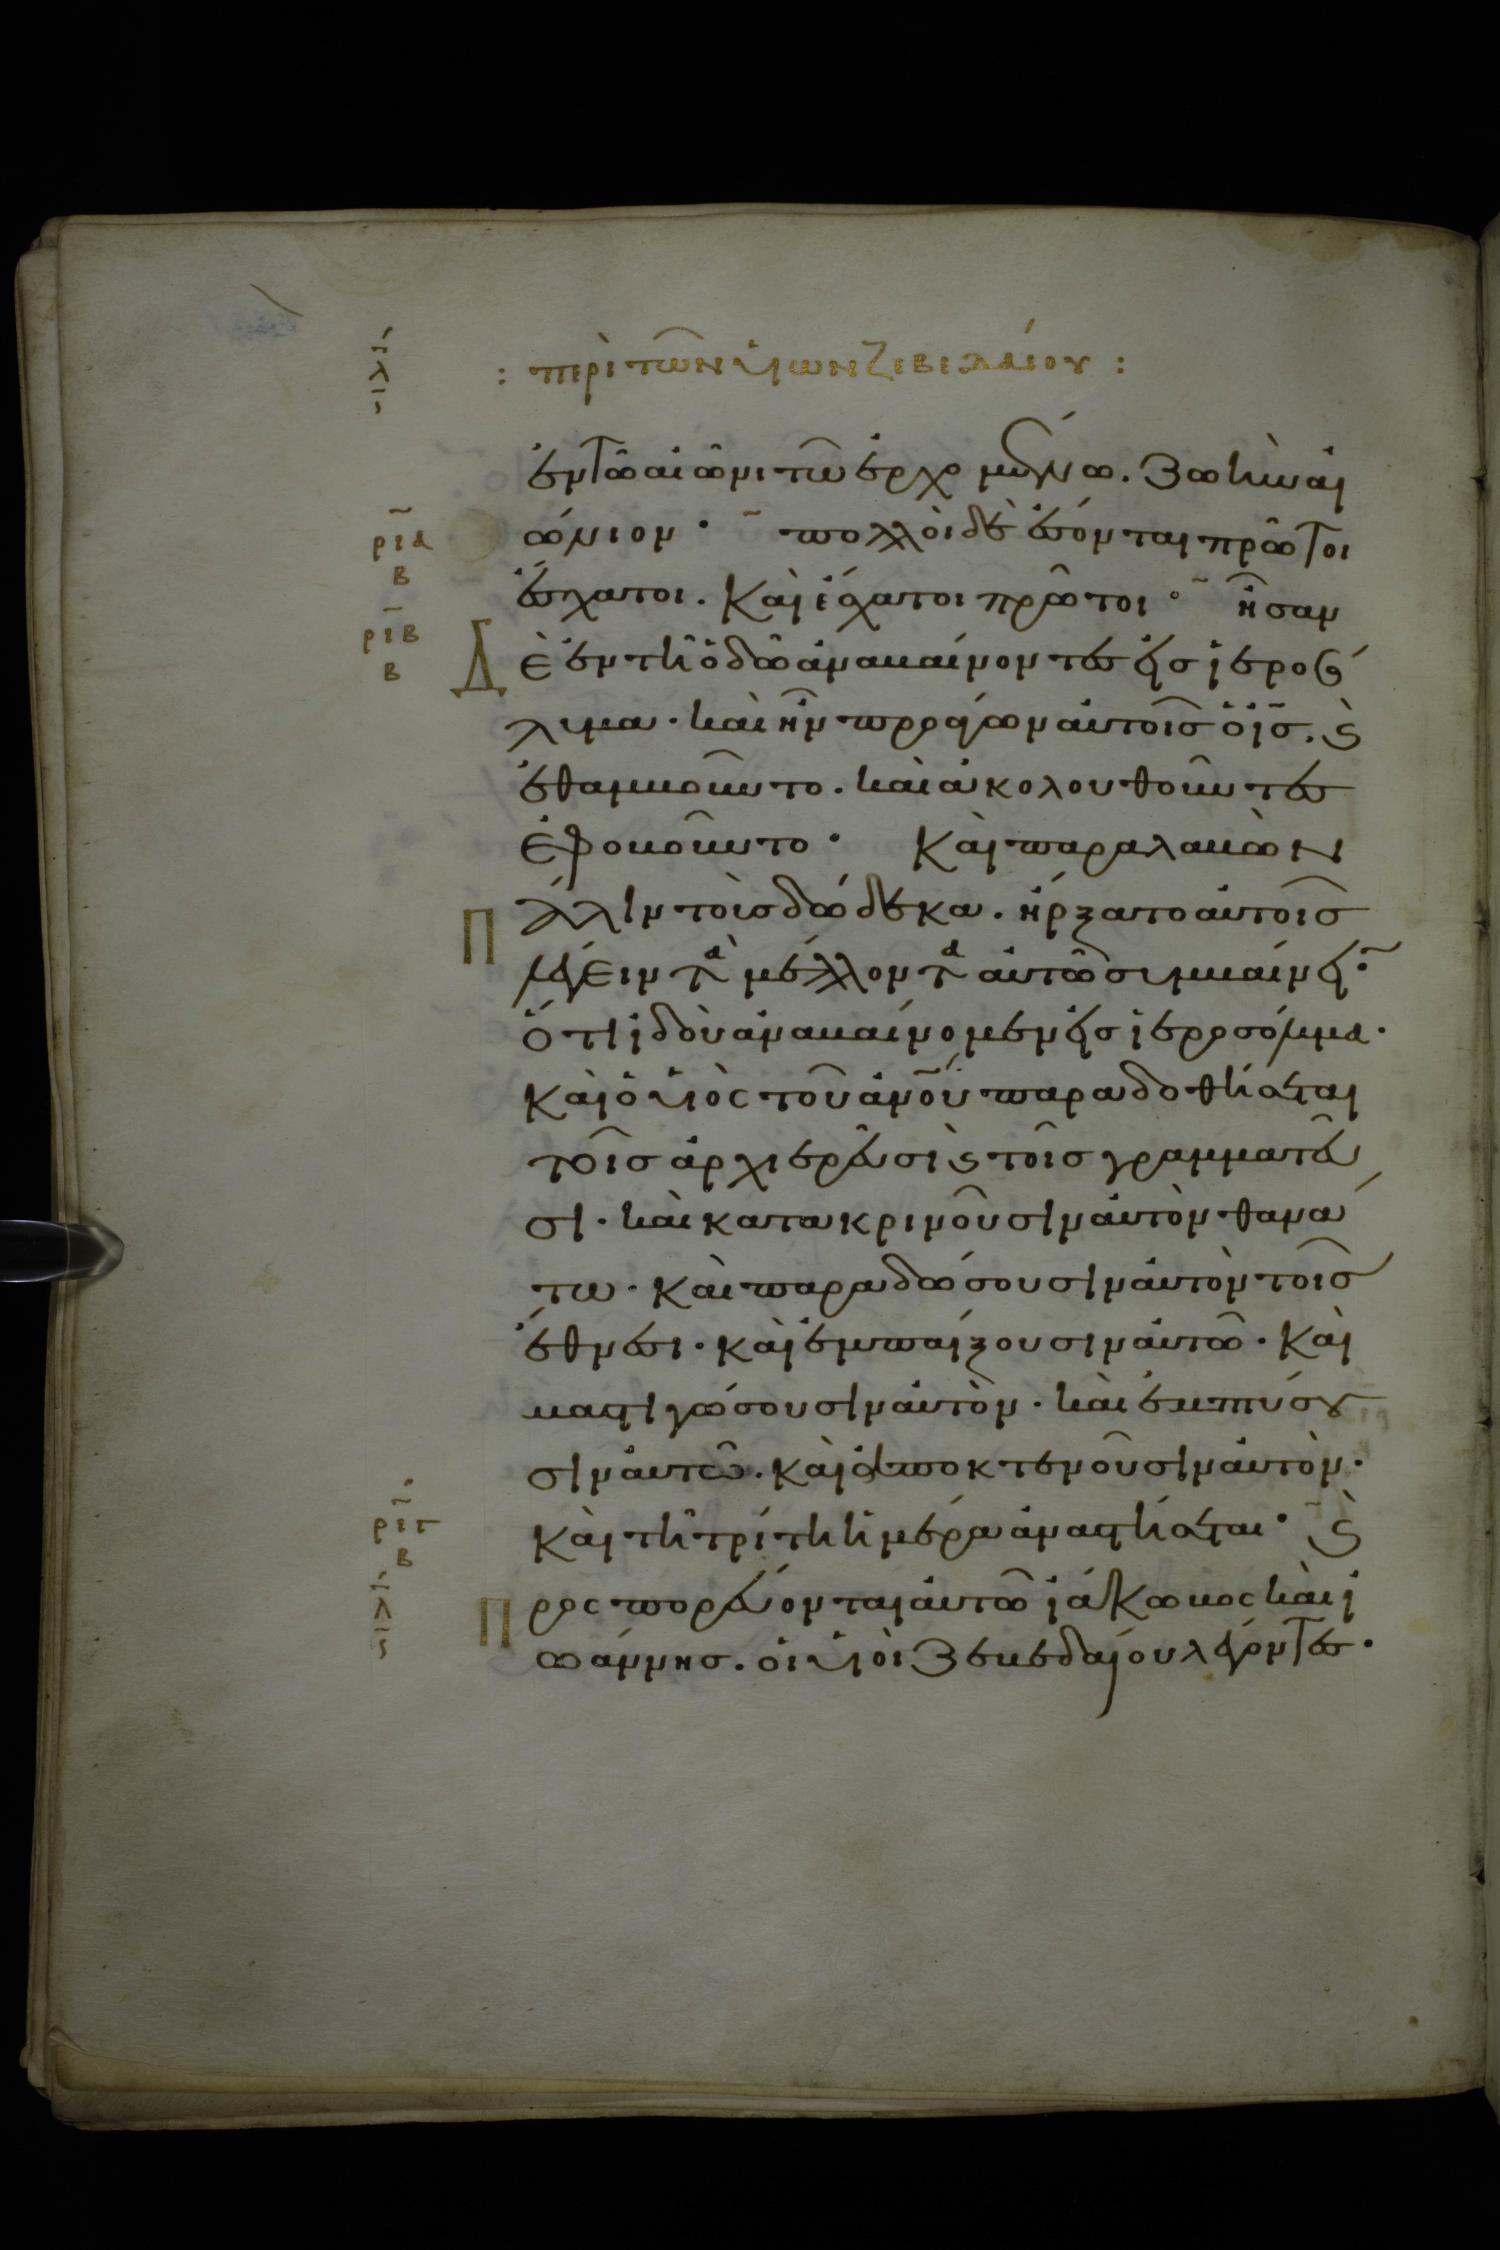 : περὶ τῶν υἱῶν ζεβεδαίου :
ἐν τῶ αἰῶνι τῶ ἐρχομένω. ζωὴν αἰ
ρια
ώνιον· πολλοὶ δὲ ἔσονται πρῶτοι
β
ἔσχατοι. καὶ ἔσχατοι πρῶτοι· ἦσαν
ριβ
Δὲ ἐν τῆ ὁδῶ ἀναβαίνοντες εἰς ἱεροσό
β
λυμα. καὶ ἦν προάγων αὐτοὺς ὁ ις. ϗ
ἐθαμβοῦντο. καὶ ἀκολουθοῦντες
ἐφοβοῦντο· καὶ παραλαβὼν
Πάλιν τοὺς δώδεκα. ἤρξατο αὐτοῖς
λέγειν τὰ μέλλοντα αὐτῶ συμβαίνειν·
ὅτι ἰδοὺ ἀναβαίνομεν εἰς ἱεροσόλυμα.
καὶ ὁ υἱὸς τοῦ ανου παραδοθήσεται
τοῖς ἀρχιερεῦσι ϗ τοῖς γραμματεῦ
σι. καὶ κατακρινοῦσιν αὐτὸν θανά
τω. καὶ παραδώσουσιν αὐτὸν τοῖς
ἔθνεσι. καὶ ἐμπαίξουσιν αὐτῶ. καὶ
μαστιγώσουσιν αὐτὸν. καὶ ἐμπτύσου
σιν αὐτῶ. καὶ ἀποκτενοῦσιν αὐτὸν.
ριγ
καὶ τῆ τρίτη ἡμέρα ἀναστήσεται· ϗ
β
Προσπορεύονται αὐτῶ ἰάκωβος καὶ ἰ
ωάννης. οἱ υἱοὶ ζεβεδαίου λέγοντες·